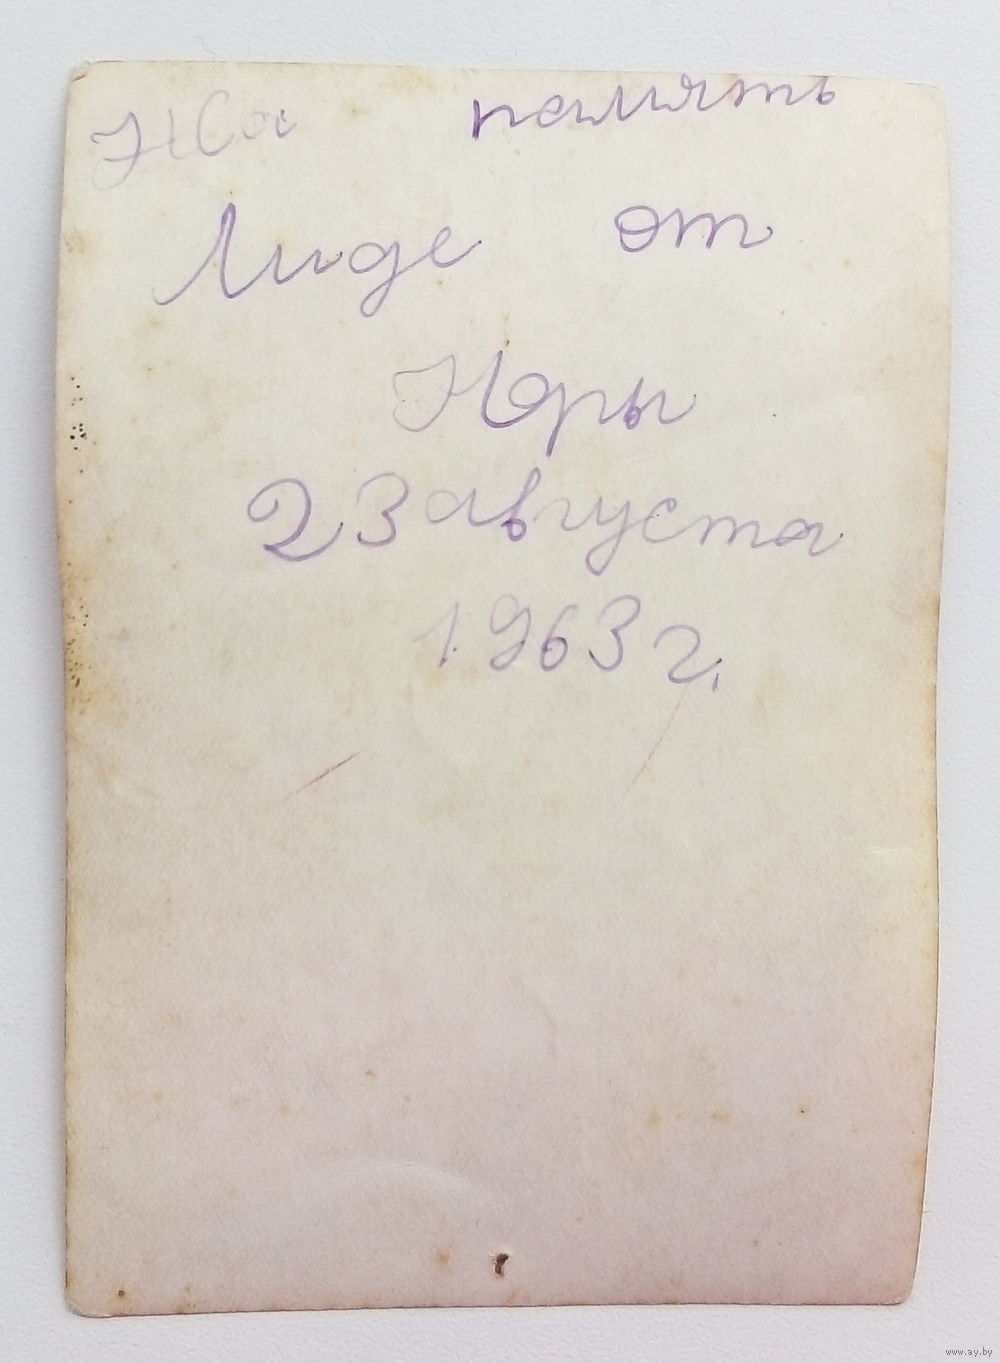 На память
Лиде от
Юры
23 августа
1963 г.
www.ay.by